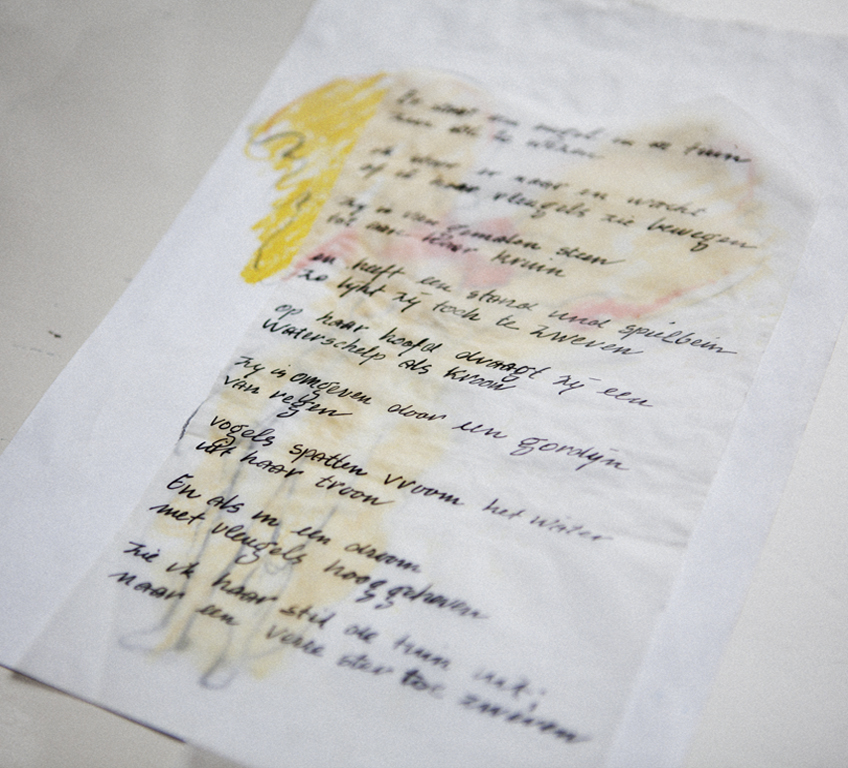 Er staat een engel in de tuin
ik door er naar en wacht
of ik haar vleugels zie bewegen
Zy is van steen
tot aan haar kruin
en heeft een stand und spielbein
zo lykt zy toch te zweven
op haar hoofd draagt zy een
Waterschelp als kroon
Zy is omgeven door een gordyn
van regen
vogels spatten vroom het water
uit haar troon
En als in een droom
met vleugels hooggeheven
zie ik haar stil de tuin uit;
naar een verre ster toe zweven